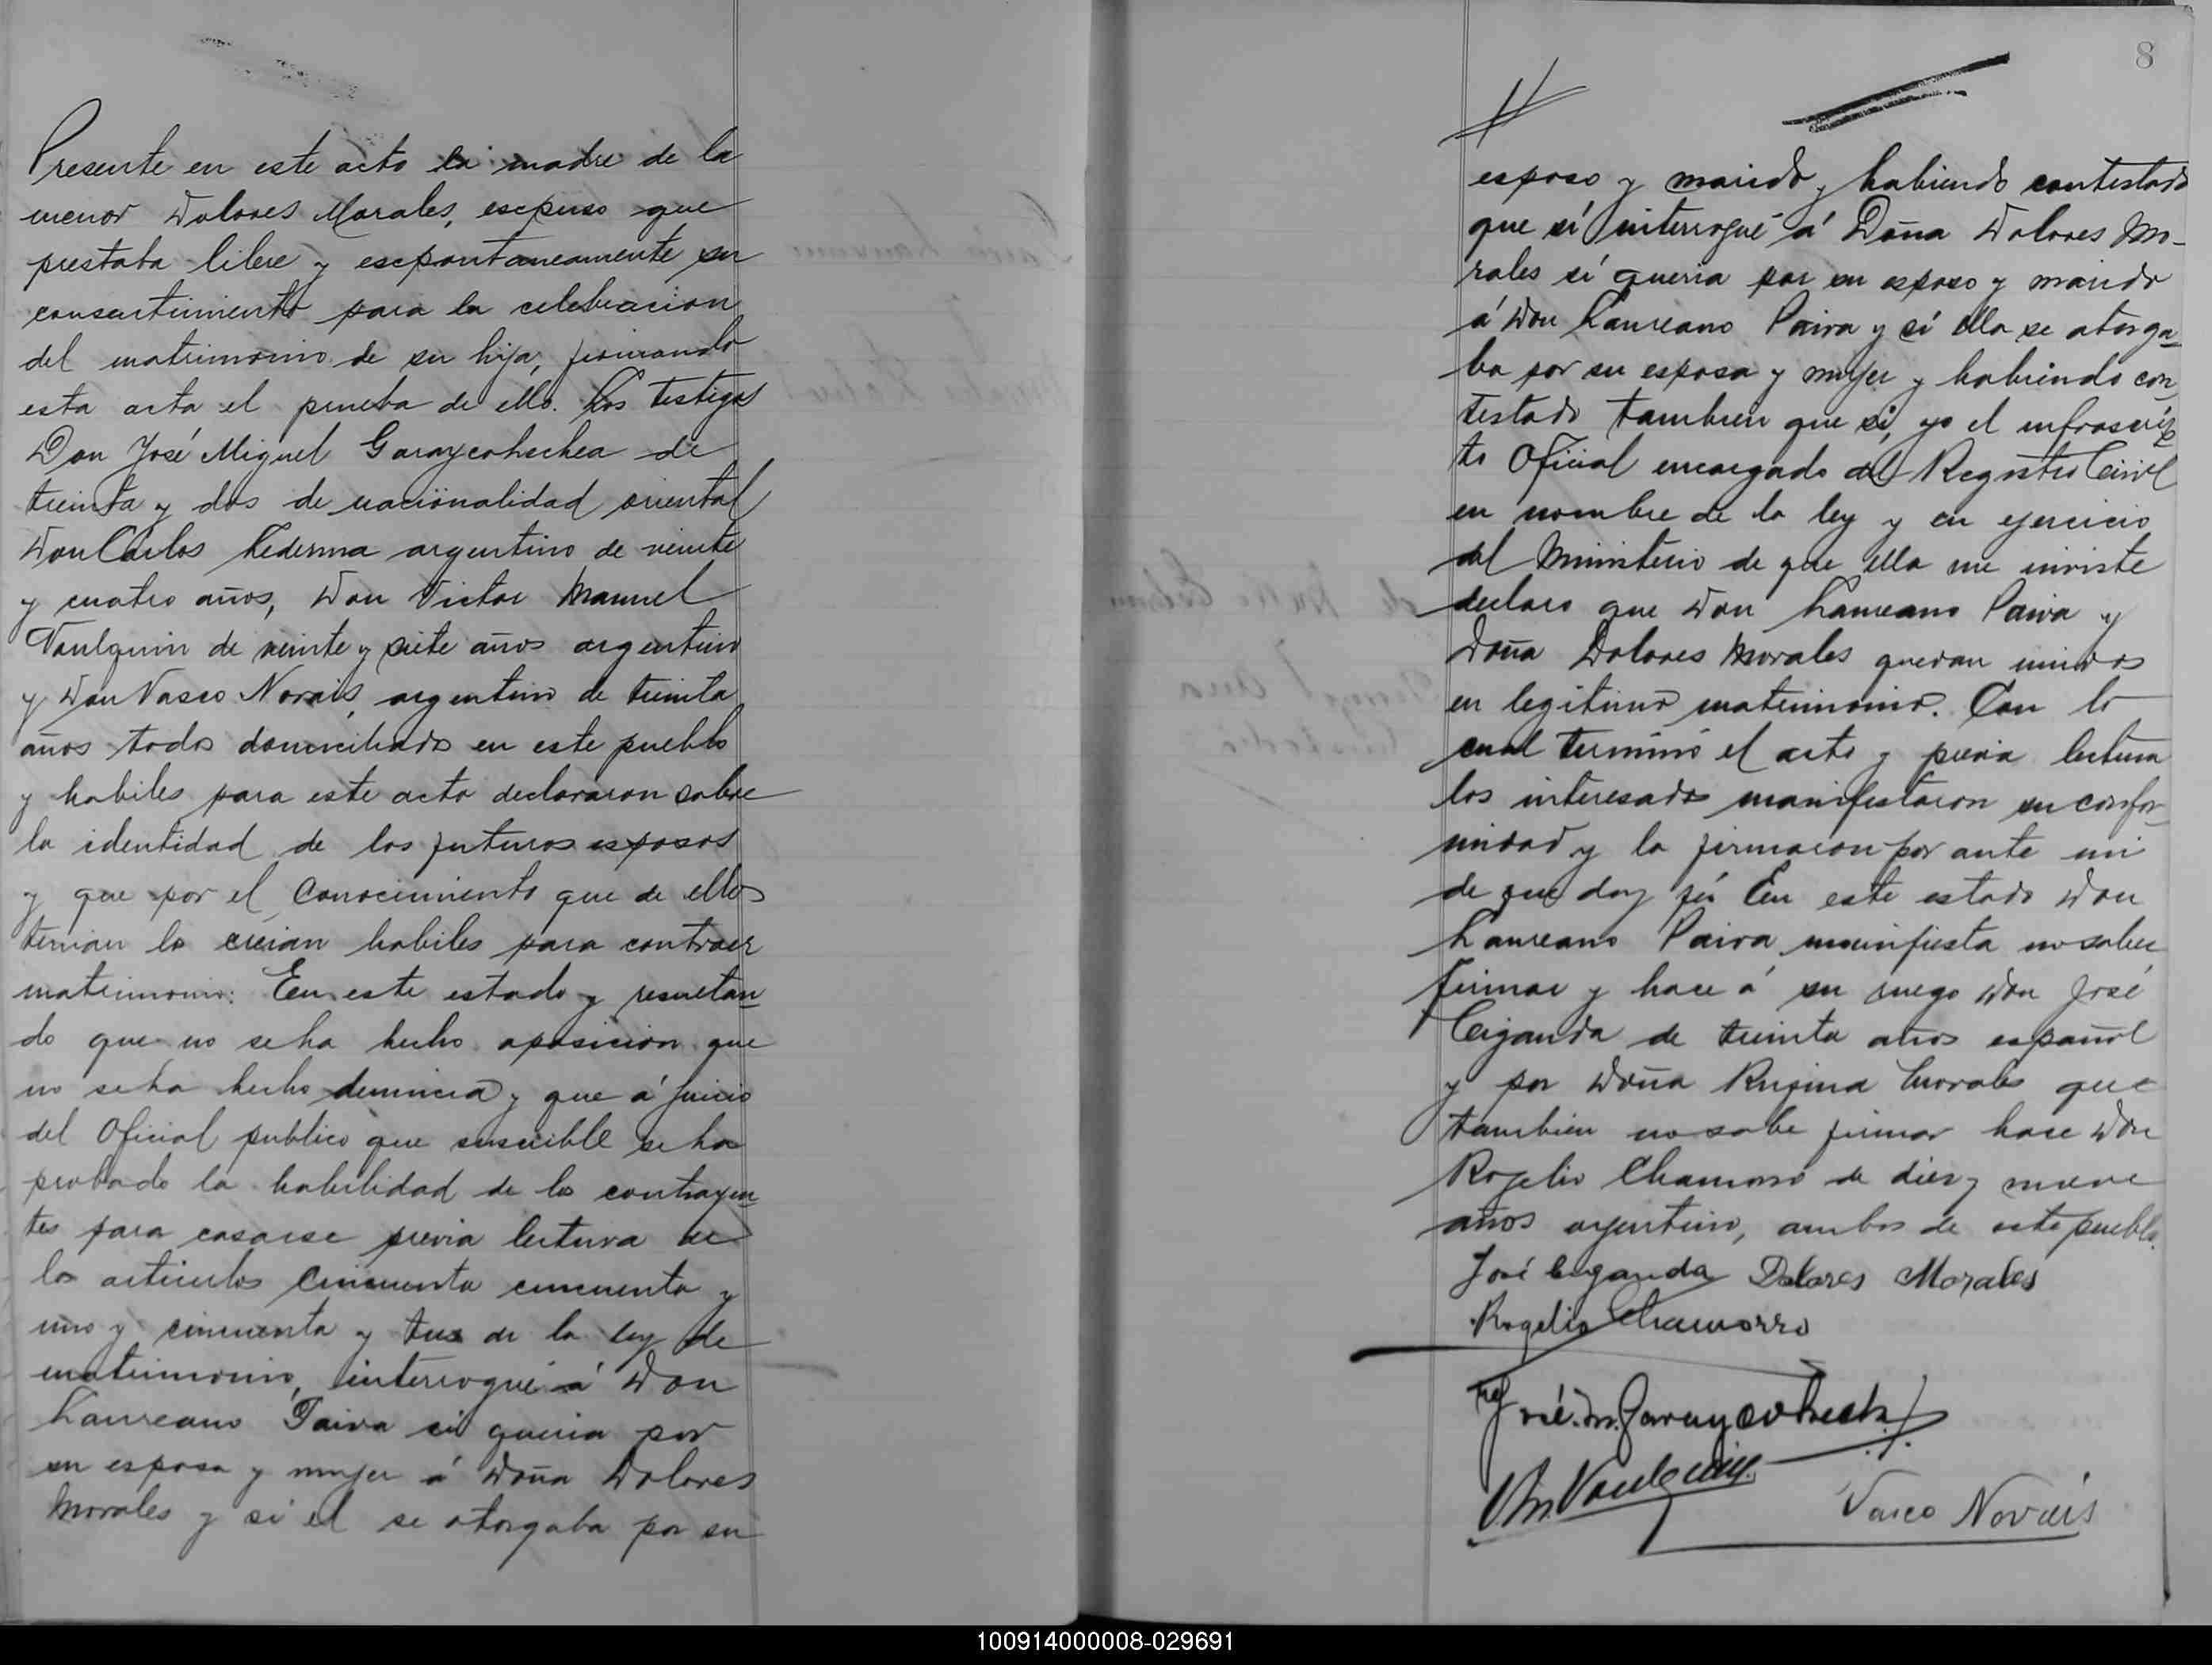 Presente en este acto la madre de la
menor Dolores Morales, escpuso que
prestaba libre y escpontaneamente su
consentimiento para la celebracion
del matrimonio de su hija, firmando
esta acta el prueba de ello. Los testigos
Don José Miguel Garaycohechea de
treinta y dos de nacionalidad oriental
Don Carlos Ledesma argentino de veinte
y cuatro años, Don Victor Manuel
Vaulquin de veinte y siete años argentino
y Don Vasco Novais, argentino de treinta
años todos domiciliados en este pueblo
y habiles para este acto declararon sobre
la identidad de los futuros esposos
y que por el conocimiento que de ellos
tenian lo creian habiles para contraer
matrimonio: En este estado y resultan
do que no se ha hecho oposicion que
no se ha hecho denuncia y que á juicio
del Oficial publico que suscribe se ha
probado la habilidad de los contrayen
tes para casarse previa lectura de
los articulos cincuenta cincuenta y
uno y cincuenta y tres de la ley de
matrimonio, interrogué á Don
Laureano Paiva si queria por
su esposa y mujer á Doña Dolores
Morales y si el se otorgaba por su
8
esposo y marido, habiendo contestado
que si interrogué á Doña Dolores Mo-
rales si queria por su esposo y marido
á Don Laureano Paiva y si ella se otorga
ba por su esposa y mujer y habiendo con
testado tambien que si, yo el infrascrip
to Oficial encargado del Registro Civil
en nombre de la ley y en ejercicio
del Ministerio de que ella me inviste
declaro que Don Laureano Paiva y
Doña Dolores Morales quedan unidos
en legitimo matrimonio. Con lo
cual terminó el acto y previa lectura
los interesados manifestaron su confor
midad y la firmaron por ante mi
de que doy fé En este estado Don
Laureano Paiva manifiesta no saber
firmar y hace á su ruego Don José
Ciganda de treinta años español
y por Doña Rugina Morales que
tambien no sabe firmar hace Don
Rogelio Chamorro de diez y nueve
años argentino, ambos de este pueblo.
José Ciganda Dolores Morales
Rogelio Chamorro
José. M. Garaycohechea
V. M. Vaulquin
Vasco Novais
100914000008-029691